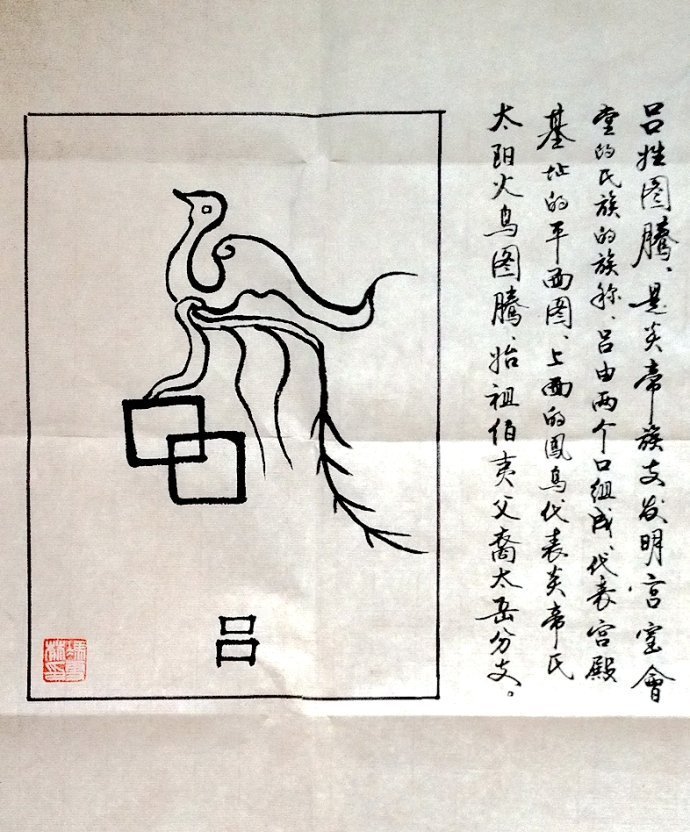 吕姓图腾、是炎帝族支发明宫室會
堂的氏族的族称、吕由两个口组成、代表宫殿
基址的平面图、上面的凤鸟代表炎帝氏
太阳火鸟图腾、始祖伯夷父裔太岳分支。
吕